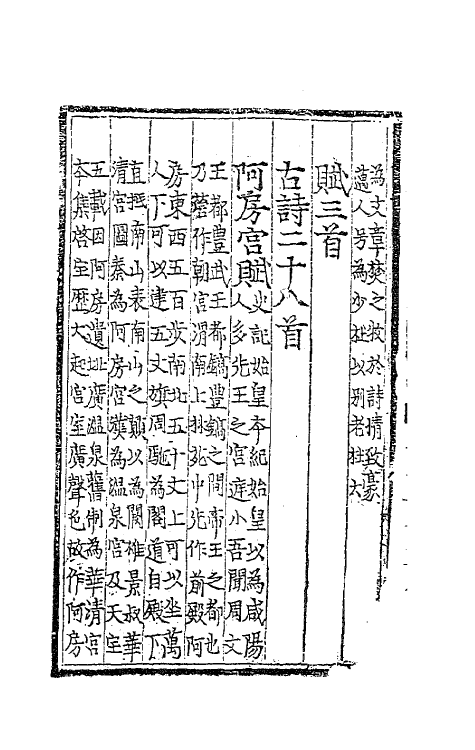 為文章焚之牧於詩情致豪
邁人号為少杜以别老杜云
賦三首
古詩二十八首
阿房宮賦史記始皇夲紀始皇以為咸陽
人多先王之宮庭小吾聞周文
王都豐武王都鎬豐鎬之間帝王之都也
乃營作朝宮渭南上林苑中先作前殿阿
房東西五百步南北五十丈上可以坐萬
人下可以建五丈旗周馳為閣道自殿下
直抵南山表南山之顛以為闕雍景叔華
清宮圖秦為阿房宮漢為温泉宮及天宝
五載因阿房遺址廣温泉舊制為華清宮
夲集啓宝歷大起宮室廣聲色故作阿房